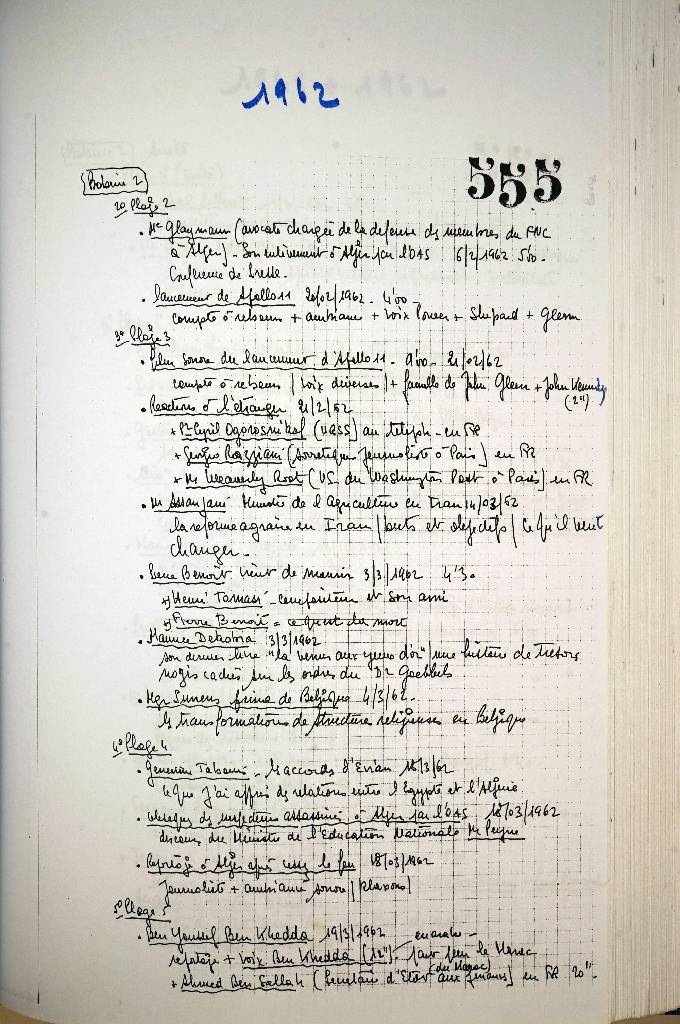 1962
555
Bobine 2
2° Plage 2
. Me Glaymann (avocate chargée de la défense des membres du FNC
à Alger) - Son enlèvement à Alger par l'OAS 6/2/1962 5'00-
Conférence de Presse -
. lancement de Apollo 11 20/02/1962 - 4'00 -
compte à rebours + ambiance + voix Powers + Shepard + Glenn
3° Plage 3
. film sonore du lancement d'Apollo 11 - 9'00 - 21/02/62
compte à rebours (voix diverses) + famille de John Glenn + John Kennedy
(2")
. Réactions à l'étranger 21/2/62
+ Cyril (URSS) au téléph - en FR
+ Georges (Soviétique Journaliste à Paris) en FR
+ Mr Weaverly Root (US du Washington Post à Paris) en FR
. Mr Ministre de l'Agriculture en Iran 14/03/62
la réforme agraire en Iran / buts et objectifs / ce qu'il veut
changer -
. Pierre Benoit vient de mourir 3/3/1962 4'3-
+) Henri Tomasi - compositeur et son ami
+) Pierre Benoit = ce qu'est la mort
. Maurice Dekobra 3/3/1962
son dernier livre "la Venus aux yeux d'or" une histoire de trésors
nazis cachés sur les ordres du Dr Goebbels
. Mgr Suenens primat de Belgique 4/3/62 -
les transformations de structure religieuses en Belgique
4° Plage 4
. Geneviève Tabouis - les accords d'Evian 18/3/62
Ce que j'ai appris des relations entre l'Egypte et l'Algérie
. obsèques des inspecteurs assassinés à Alger par l'OAS 18/03/1962
discours du Ministre de l'Education Nationale Mr
. Reportage à Alger après cessez le feu 18/03/1962
Journaliste + ambiance sonore (klaxons)
5° Plage 5
. Ben Youssef Ben Khedda 19/3/1962 en arabe -
reportage + voix Ben Khedda (12") pour le Maroc
(du Maroc)
+ Ahmed Ben Sallah (Secrétaire d'Etat aux finances) en FR 20"-